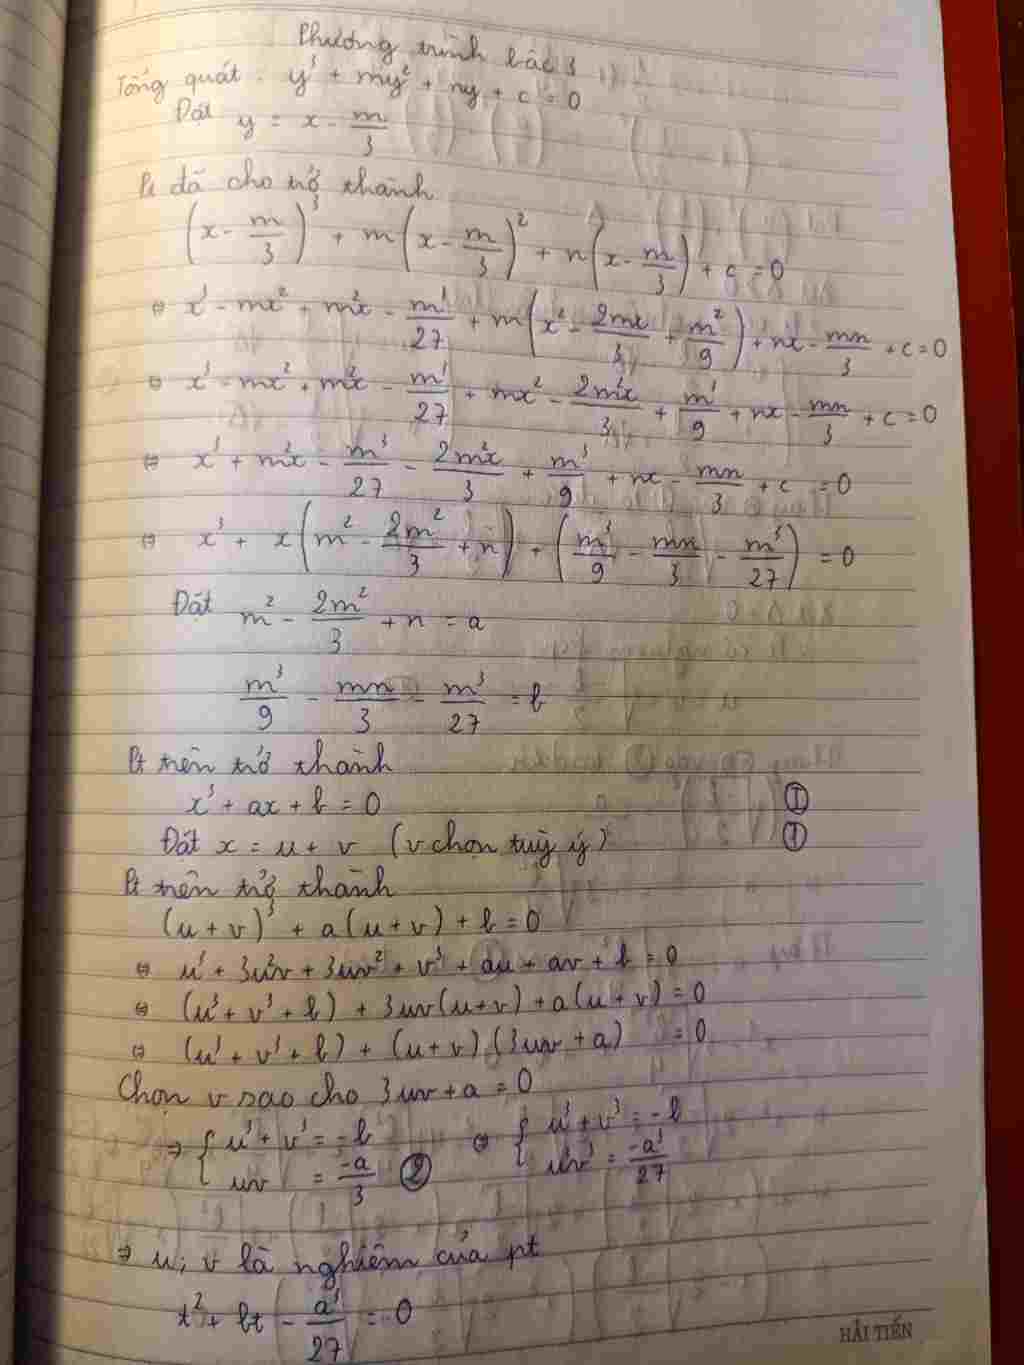 Phương trình bậc 3
Tổng quát: y³ + my² + ny + c = 0
Đặt y = x - m/3
Pt đã cho trở thành
(x - m/3)³ + m(x - m/3)² + n(x - m/3) + c = 0
⇔ x³ - mx² + m²x/3 - m³/27 + m(x² - 2mx/3 + m²/9) + nx - mn/3 + c = 0
⇔ x³ - mx² + m²x - m³/27 + mx² - 2m²x/3 + m³/9 + nx - mn/3 + c = 0
⇔ x³ + m²x - m³/27 - 2m²x/3 + m³/9 + nx - mn/3 + c = 0
⇔ x³ + x(m² - 2m²/3 + n) + (m³/9 - mn/3 - m³/27) = 0
Đặt m² - 2m²/3 + n = a
m³/9 - mn/3 - m³/27 = b
Pt trên trở thành
x³ + ax + b = 0 ①
Đặt x = u + v (v chọn tuỳ ý) ①
Pt trên trở thành
(u + v)³ + a(u + v) + b = 0
⇔ u³ + 3u²v + 3uv² + v³ + au + av + b = 0
⇔ (u³ + v³ + b) + 3uv(u+v) + a(u + v) = 0
⇔ (u³ + v³ + b) + (u+v)(3uv + a) = 0
Chọn v sao cho 3uv + a = 0
⇒ { u³ + v³ = -b ⇔ { u³ + v³ = -b
uv = -a/3 ② u³v³ = -a³/27
⇒ u; v là nghiệm của pt
t² + bt - a³/27 = 0
HẢI TIẾN